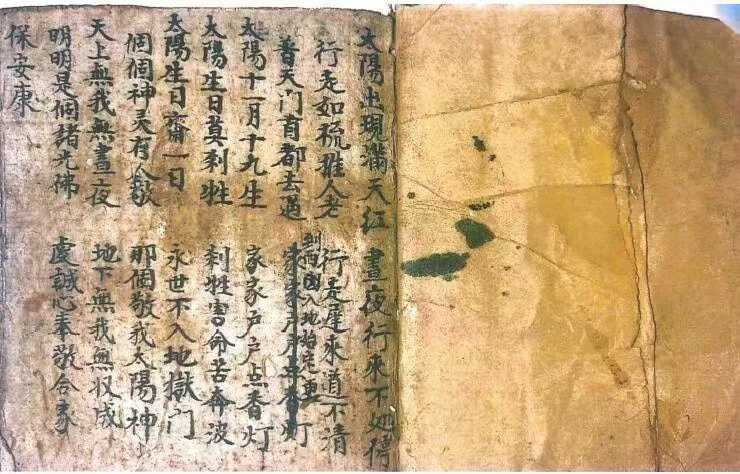 太陽出現滿天红 晝夜行來不停
行走如梳人老 行走遲來道不清
普天门首都去過 到西國入地
太陽十一月十九生 家家户户点香灯
太陽生日莫剎牲 剎牲害命苦奔波
太陽生日齋一日 永世不入地獄门
個個神灵有人敬 那個敬我太陽神
天上無我無晝夜 地下無我無収成
明明是個諸光佛 虔誠心奉敬合家
保安康